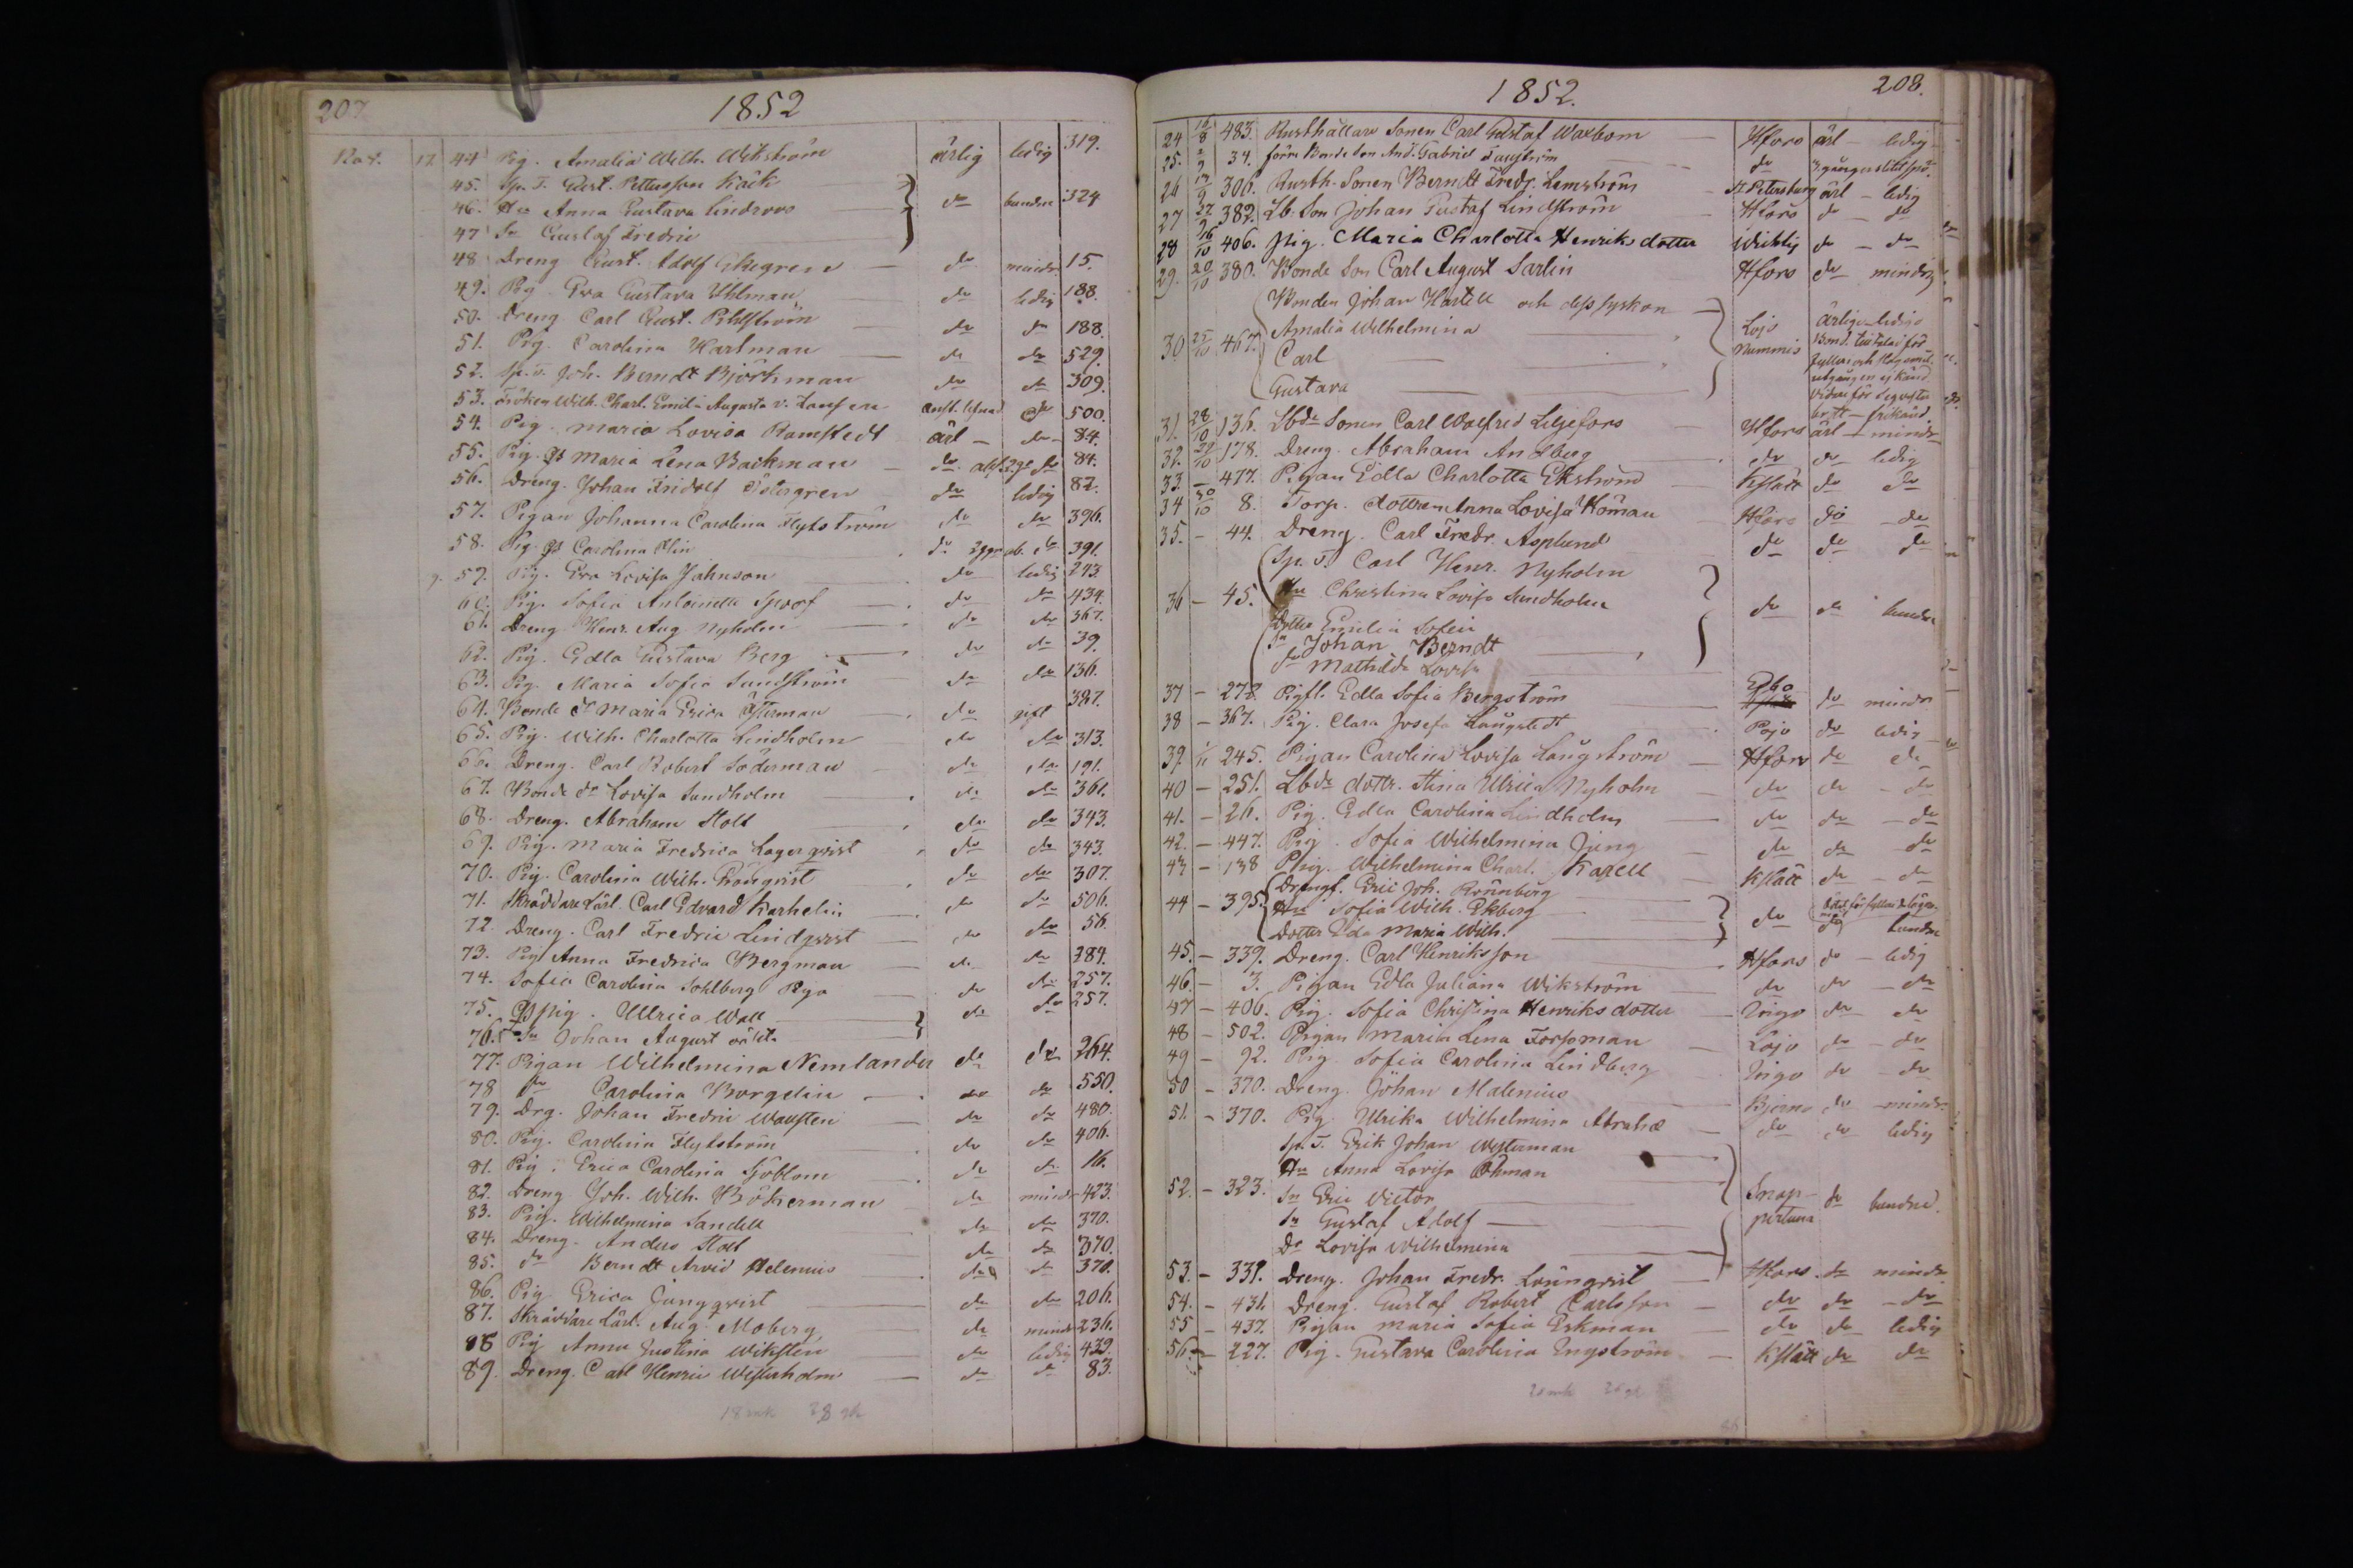 207
1852
Nov. 17. 44 Pig. Amalia Wilh. Wikström ärlig ledig 319.
45. Sp. T. Gust. Pettersson Käck
46. Hu Anna Gustava Lindroos do bunden 324
47 Sn Gustaf Fredric
48 Dreng Gust. Adolf Ekegren do mindr. 15.
49. Pig. Eva Gustava Uhlman do ledig 188.
50. Dreng Carl Gust. Pihlström do do 188.
51. Pig. Carolina Hartman do do 529.
52. Sp. s. Joh. Berndt Björkman do do 309.
53. Fröken Wilh. Charl. Emilia Augusta v. do 500.
54. Pig. Maria Lovisa Ramstedt ärl - do - 84.
55. Pig. Maria Lena Backman do do 84.
56. Dreng. Johan Fridolf Östergren do ledig 82.
57. Pigan Johanna Carolina Flytström do do 396.
58. Pig. Carolina Elin do 2ggr ab. do 391.
59. Pig. Eva Lovisa Johnson do ledig 243.
60. Pig. Sofia Antoinetta Spoof do do 434.
61. Dreng Henr. Aug Nyholm do do 367.
62. Pig. Edla Gustava Berg do do 39.
63. Pig. Maria Sofia Sundström do do 136.
64. Bonde dr Maria Erica Österman do gift 387.
65. Pig. Wilh. Charlotta Lindholm do do 313.
66. Dreng. Carl Robert Söderman do do 191.
67. Bonde dr Lovisa Sundholm do do 361.
68. Dreng. Abraham Holt do do 343.
69. Pig. Maria Fredrica Lagerqvist do do 343.
70. Pig. Carolina Wilh. Grönqvist do do 307.
71. Skräddare Lärl. Carl Edvard Karhelin do do 506.
72. Dreng. Carl Fredric Lindqvist do do 56.
73. Pig Anna Fredrica Bergman do do 284.
74. Sofia Carolina Sohlberg Piga do do 257.
75. Pig. Ulrica Wall do do 257.
76. Sn Johan August oäkta
77. Pigan Wilhelmina Nemlander do do 264.
78 do Carolina Borgelin do do 550.
79. Drg. Johan Fredric Wallsten do do 480.
80. Pig. Carolina Flytström do do 406.
81. Pig. Erica Carolina Sjöblom do do 16.
82. Dreng Joh. Wilh. Bökerman do mindr 423.
83. Pig. Wilhelmina Sandell do do 370.
84. Dreng. Anders Holt do do 370.
85. do Berndt Arvid Helenius do do 370.
86. Pig Erica Ljungqvist do do 206.
87. Skräddare Lärl. Aug. Moberg do mindr 236.
88 Pig Anna Gustina Wiksten do ledig 439.
89. Dreng. Carl Henric Westerholm do do 83.
1852.
208.
24 15/8 483. Rusthållare Sonen Carl Gustaf Waxbom Hfors ärl - ledig
25. 2/9 34. förre Bonde Son And. Gabriel do
26 306. Rusth. Sonen Berndt Fredr. Lemström St Petersburg ärl - ledig
27 27/9 382. Lb. Son Johan Gustaf Lindström Hfors do - do
28 16/10 406. Pig. Maria Charlotta Henriksdotter Wichtis do - do
29. 20/10 380. Bonde Son Carl August Sarlin Hfors do mindrg
Bonden Johan Hartell och dess syskon
30 25/10 467. Amalia Wilhelmina Lojo Nummis
Carl
Gustava
31. 28/10 136. Lbde Sonen Carl Walfrid Liljefors Hfors ärl - mindr
32. 29/10 178. Dreng. Abraham Andberg do do ledig
33 - 477. Pigan Edla Charlotta Ekström Kslätt do do
34 30/10 8. Torp. dottren Anna Lovisa Höman Hfors do - do
35. - 44. Dreng. Carl Fredr. Asplund do do do
Sp. T. Carl Henr. Nyholm
36 - 45. Hu Christina Lovisa Sundholm do do bundn
Dotter Emilia Sofia
Sn Johan Berndt
dr Mathilda Lovisa
37 - 278. Pigfl. Edla Sofia Bergström Esbo do mindr
38 - 367. Pig. Clara Josefa Långstedt Pojo do ledig
39. 1/11 245. Pigan Carolina Lovisa Långström Hfors do do
40 - 251. Lbde dottr. Stina Ulrica Nyholm do do - do
41. - 26. Pig. Edla Carolina Lindholm do do - do
42. - 447. Pig. Sofia Wilhelmina Ljung do do do
43 - 138 Pig. Wilhelmina Charl. Karell Kslätt do - do
Drengf. Eric Joh. Rönnberg
44 - 395. Hu Sofia Wilh. Ekberg do do bundn
Dotter Ida Maria Wilh.
45. - 339. Dreng. Carl Henriksson Hfors do - ledig
46. - 3. Pigan Edla Juliana Wikström do do - do
47 - 406. Pig. Sofia Christina Henriksdotter Ingo do do
48 - 502. Pigan Maria Lena Forsman Lojo do - do
49 - 92. Pig. Sofia Carolina Lindberg Ingo do - do
50 - 370. Dreng. Johan Malenius Bjerno do mindr.
51. - 370. Pig Ulrika Wilhelmina Abrahd do do ledig
Sp. T. Erik Johan Westerman
Hu Anna Lovisa Öhman
52. - 323. Sn Eric Victor Snappertuna do bundne.
Sn Gustaf Adolf
Dr Lovisa Wilhelmina
53. - 339. Dreng. Johan Fredr. Lönnqvist Hfors. do mindr
54. - 431. Dreng. Gustaf Robert Carlsson do do - do
55 - 437. Pigan Maria Sofia Eskman do do ledig
56. - 227. Pig. Gustava Carolina Engström Kslätt do do